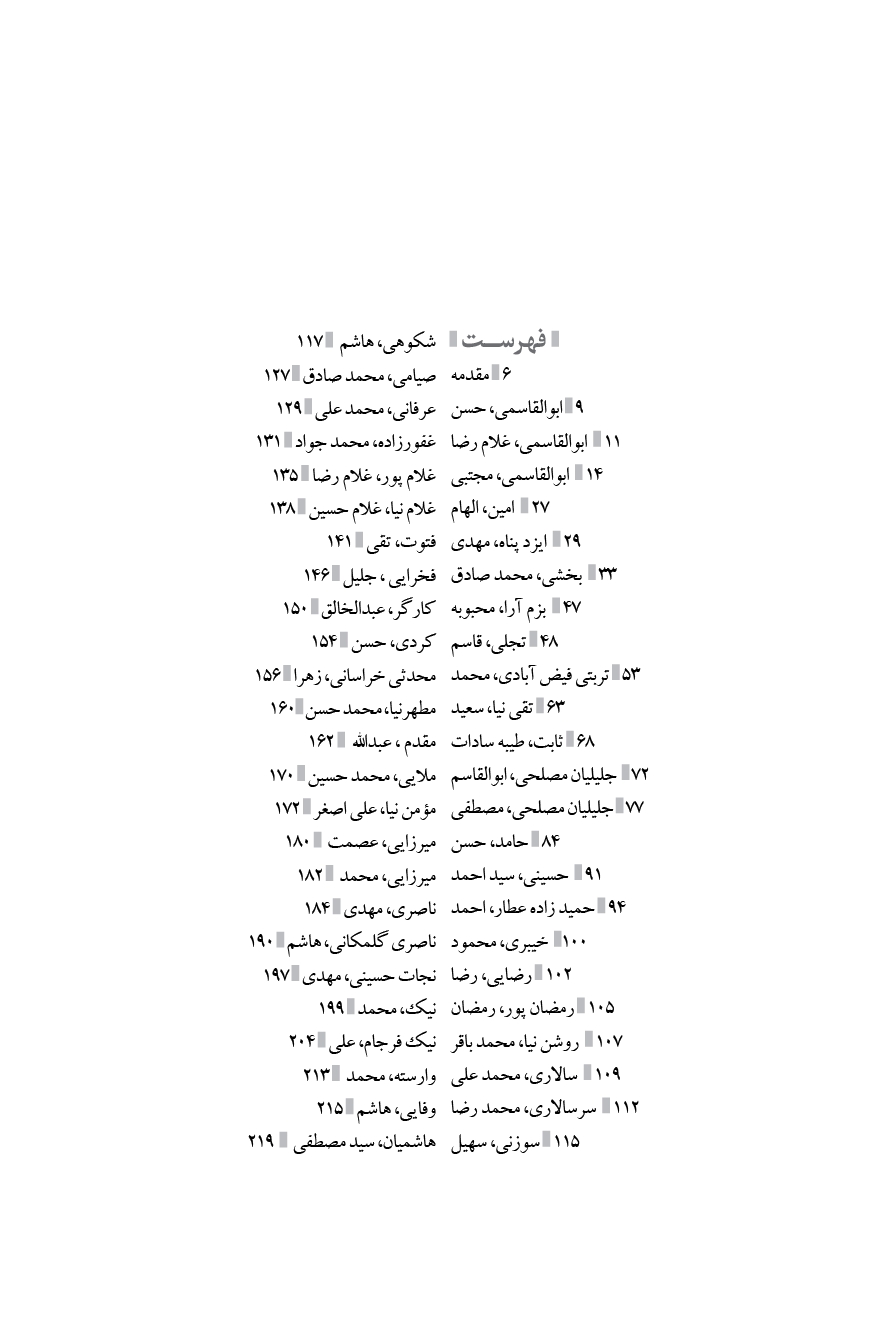 فهرست
۶ مقدمه
۹ ابوالقاسمی، حسن
۱۱ ابوالقاسمی، غلام رضا
۱۴ ابوالقاسمی، مجتبی
۲۷ امین، الهام
۲۹ ایزد پناه، مهدی
۳۳ بخشی، محمد صادق
۴۷ بزم آرا، محبوبه
۴۸ تجلی، قاسم
۵۳ تربتی فیض آبادی، محمد
۶۳ تقی نیا، سعید
۶۸ ثابت، طیبه سادات
۷۲ جلیلیان مصلحی، ابوالقاسم
۷۷ جلیلیان مصلحی، مصطفی
۸۴ حامد، حسن
۹۱ حسینی، سید احمد
۹۴ حمید زاده عطار، احمد
۱۰۰ خیبری، محمود
۱۰۲ رضایی، رضا
۱۰۵ رمضان پور، رمضان
۱۰۷ روشن نیا، محمد باقر
۱۰۹ سالاری، محمد علی
۱۱۲ سرسالاری، محمد رضا
۱۱۵ سوزنی، سهیل
شکوهی، هاشم ۱۱۷
صیامی، محمد صادق ۱۲۷
عرفانی، محمد علی ۱۲۹
غفورزاده، محمد جواد ۱۳۱
غلام پور، غلام رضا ۱۳۵
غلام نیا، غلام حسین ۱۳۸
فتوت، تقی ۱۴۱
فخرایی ، جلیل ۱۴۶
کارگر، عبدالخالق ۱۵۰
کردی، حسن ۱۵۴
محدثی خراسانی، زهرا ۱۵۶
مطهرنیا، محمد حسن ۱۶۰
مقدم ، عبدالله ۱۶۲
ملایی، محمد حسین ۱۷۰
مؤمن نیا، علی اصغر ۱۷۲
میرزایی، عصمت ۱۸۰
میرزایی، محمد ۱۸۲
ناصری، مهدی ۱۸۴
ناصری گلمکانی، هاشم ۱۹۰
نجات حسینی، مهدی ۱۹۷
نیک، محمد ۱۹۹
نیک فرجام، علی ۲۰۴
وارسته، محمد ۲۱۳
وفایی، هاشم ۲۱۵
هاشمیان، سید مصطفی ۲۱۹